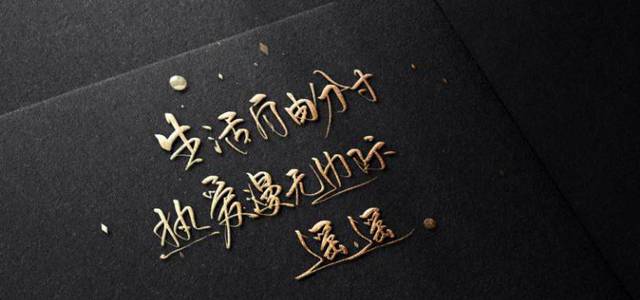 生活分寸
热爱漫无边际
遥遥